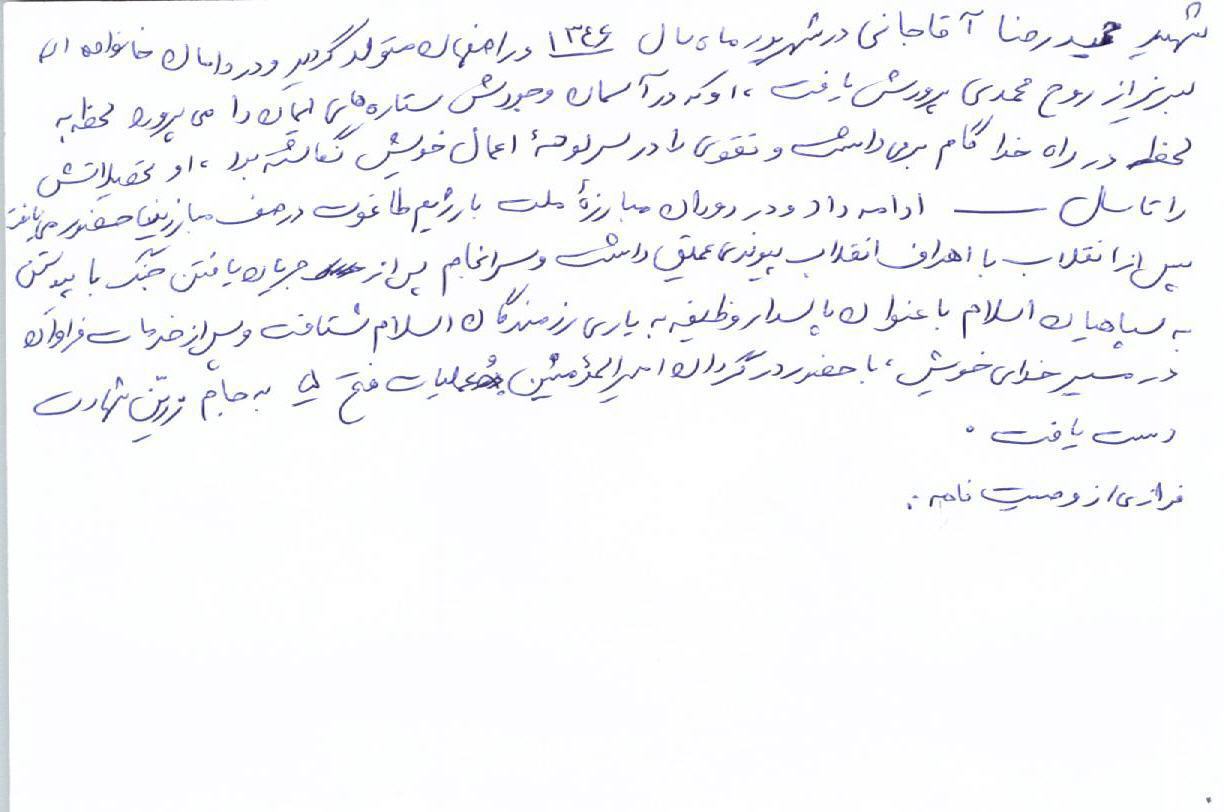 شهید حمیدرضا آقاجانی در شهریور ماه سال ۱۳۴۶ در اصفهان متولد گردید و در دامان خانواده ای
لبریز از روح محمدی پرورش یافت ، او که در آسمان وجودش ستاره های ایمان را می پرورد لحظه به
لحظه در راه خدا گام برمی داشت و تقوی را در سرلوحهٔ اعمال خویش نگاشته بود ، او تحصیلاتش
را تا سال ـــــ ادامه داد و در دوران مبارزهٔ ملت با رژیم طاغوت در صف مبارزین حضور می یافت
پس از انقلاب با اهداف انقلاب پیوندی عمیق داشت و سرانجام پس از جریان یافتن جنگ با پیوستن
به سپاهیان اسلام با عنوان پاسدار وظیفه به یاری رزمندگان اسلام شتافت و پس از خدمات فراوان
در مسیر خدای خویش ، با حضور در گردان امیرالمؤمنین عملیات فتح ۵ به جام زرّین شهادت
دست یافت .
فرازی از وصیت نامه :